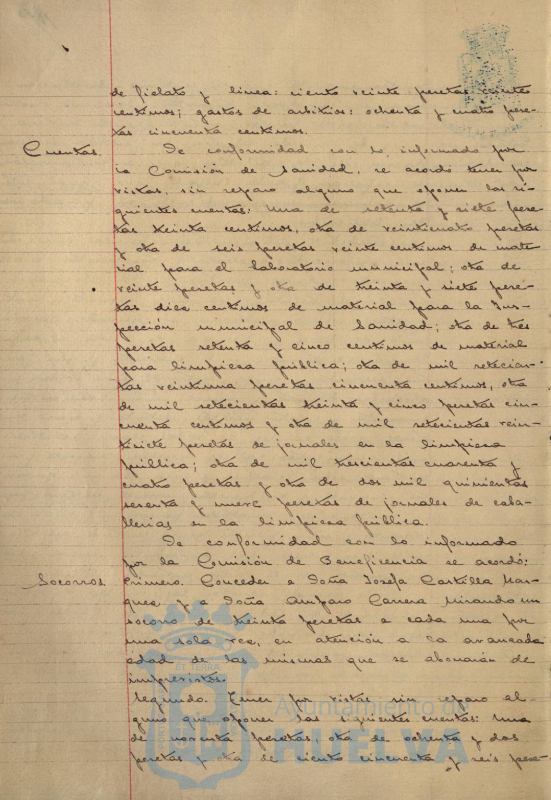 de fielato y linea: ciento veinte pesetas veinte
centimos; gastos de arbitrios: ochenta y cuatro pese-
tas cincuenta centimos.
Cuentas. De conformidad con lo informado por
la Comisión de Sanidad, se acordó tener por
vistas, sin reparo alguno que oponer las si-
guientes cuentas: Una de setenta y siete pese-
tas treinta centimos, otra de veinticuatro pesetas
y otra de seis pesetas veinte centimos de mate-
rial para el laboratorio municipal; otra de
veinte pesetas y otra de treinta y siete pese-
tas diez centimos de material para la Ins-
pección municipal de Sanidad; otra de tres
pesetas setenta y cinco centimos de material
para limpieza pública; otra de mil setecien-
tas veintiuna pesetas cincuenta centimos, otra
de mil setecientas treinta y cinco pesetas cin-
cuenta centimos y otra de mil setecientas vein-
tisiete pesetas de jornales en la limpieza
pública; otra de mil trescientas cuarenta y
cuatro pesetas y otra de dos mil quinientas
sesenta y nueve pesetas de jornales de caba-
llerias en la limpieza pública.
De conformidad con lo informado
por la Comisión de Beneficencia se acordó:
Socorros. Primero. Conceder a Doña Josefa Castilla Mar-
quez y a Doña Amparo Carrera Mirando un
socorro de treinta pesetas a cada una por
una sola vez, en atención a la avanzada
edad de las mismas que se abonarán de
imprevistos.
Segundo. Tener por vistas sin reparo al-
guno que oponer las siguientes cuentas: Una
de noventa pesetas, otra de ochenta y dos
pesetas y otra de ciento cincuenta y seis pese-
Ayuntamiento de
HUELVA